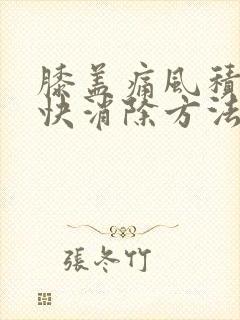 膝盖痛风積
快消除方法
張冬竹